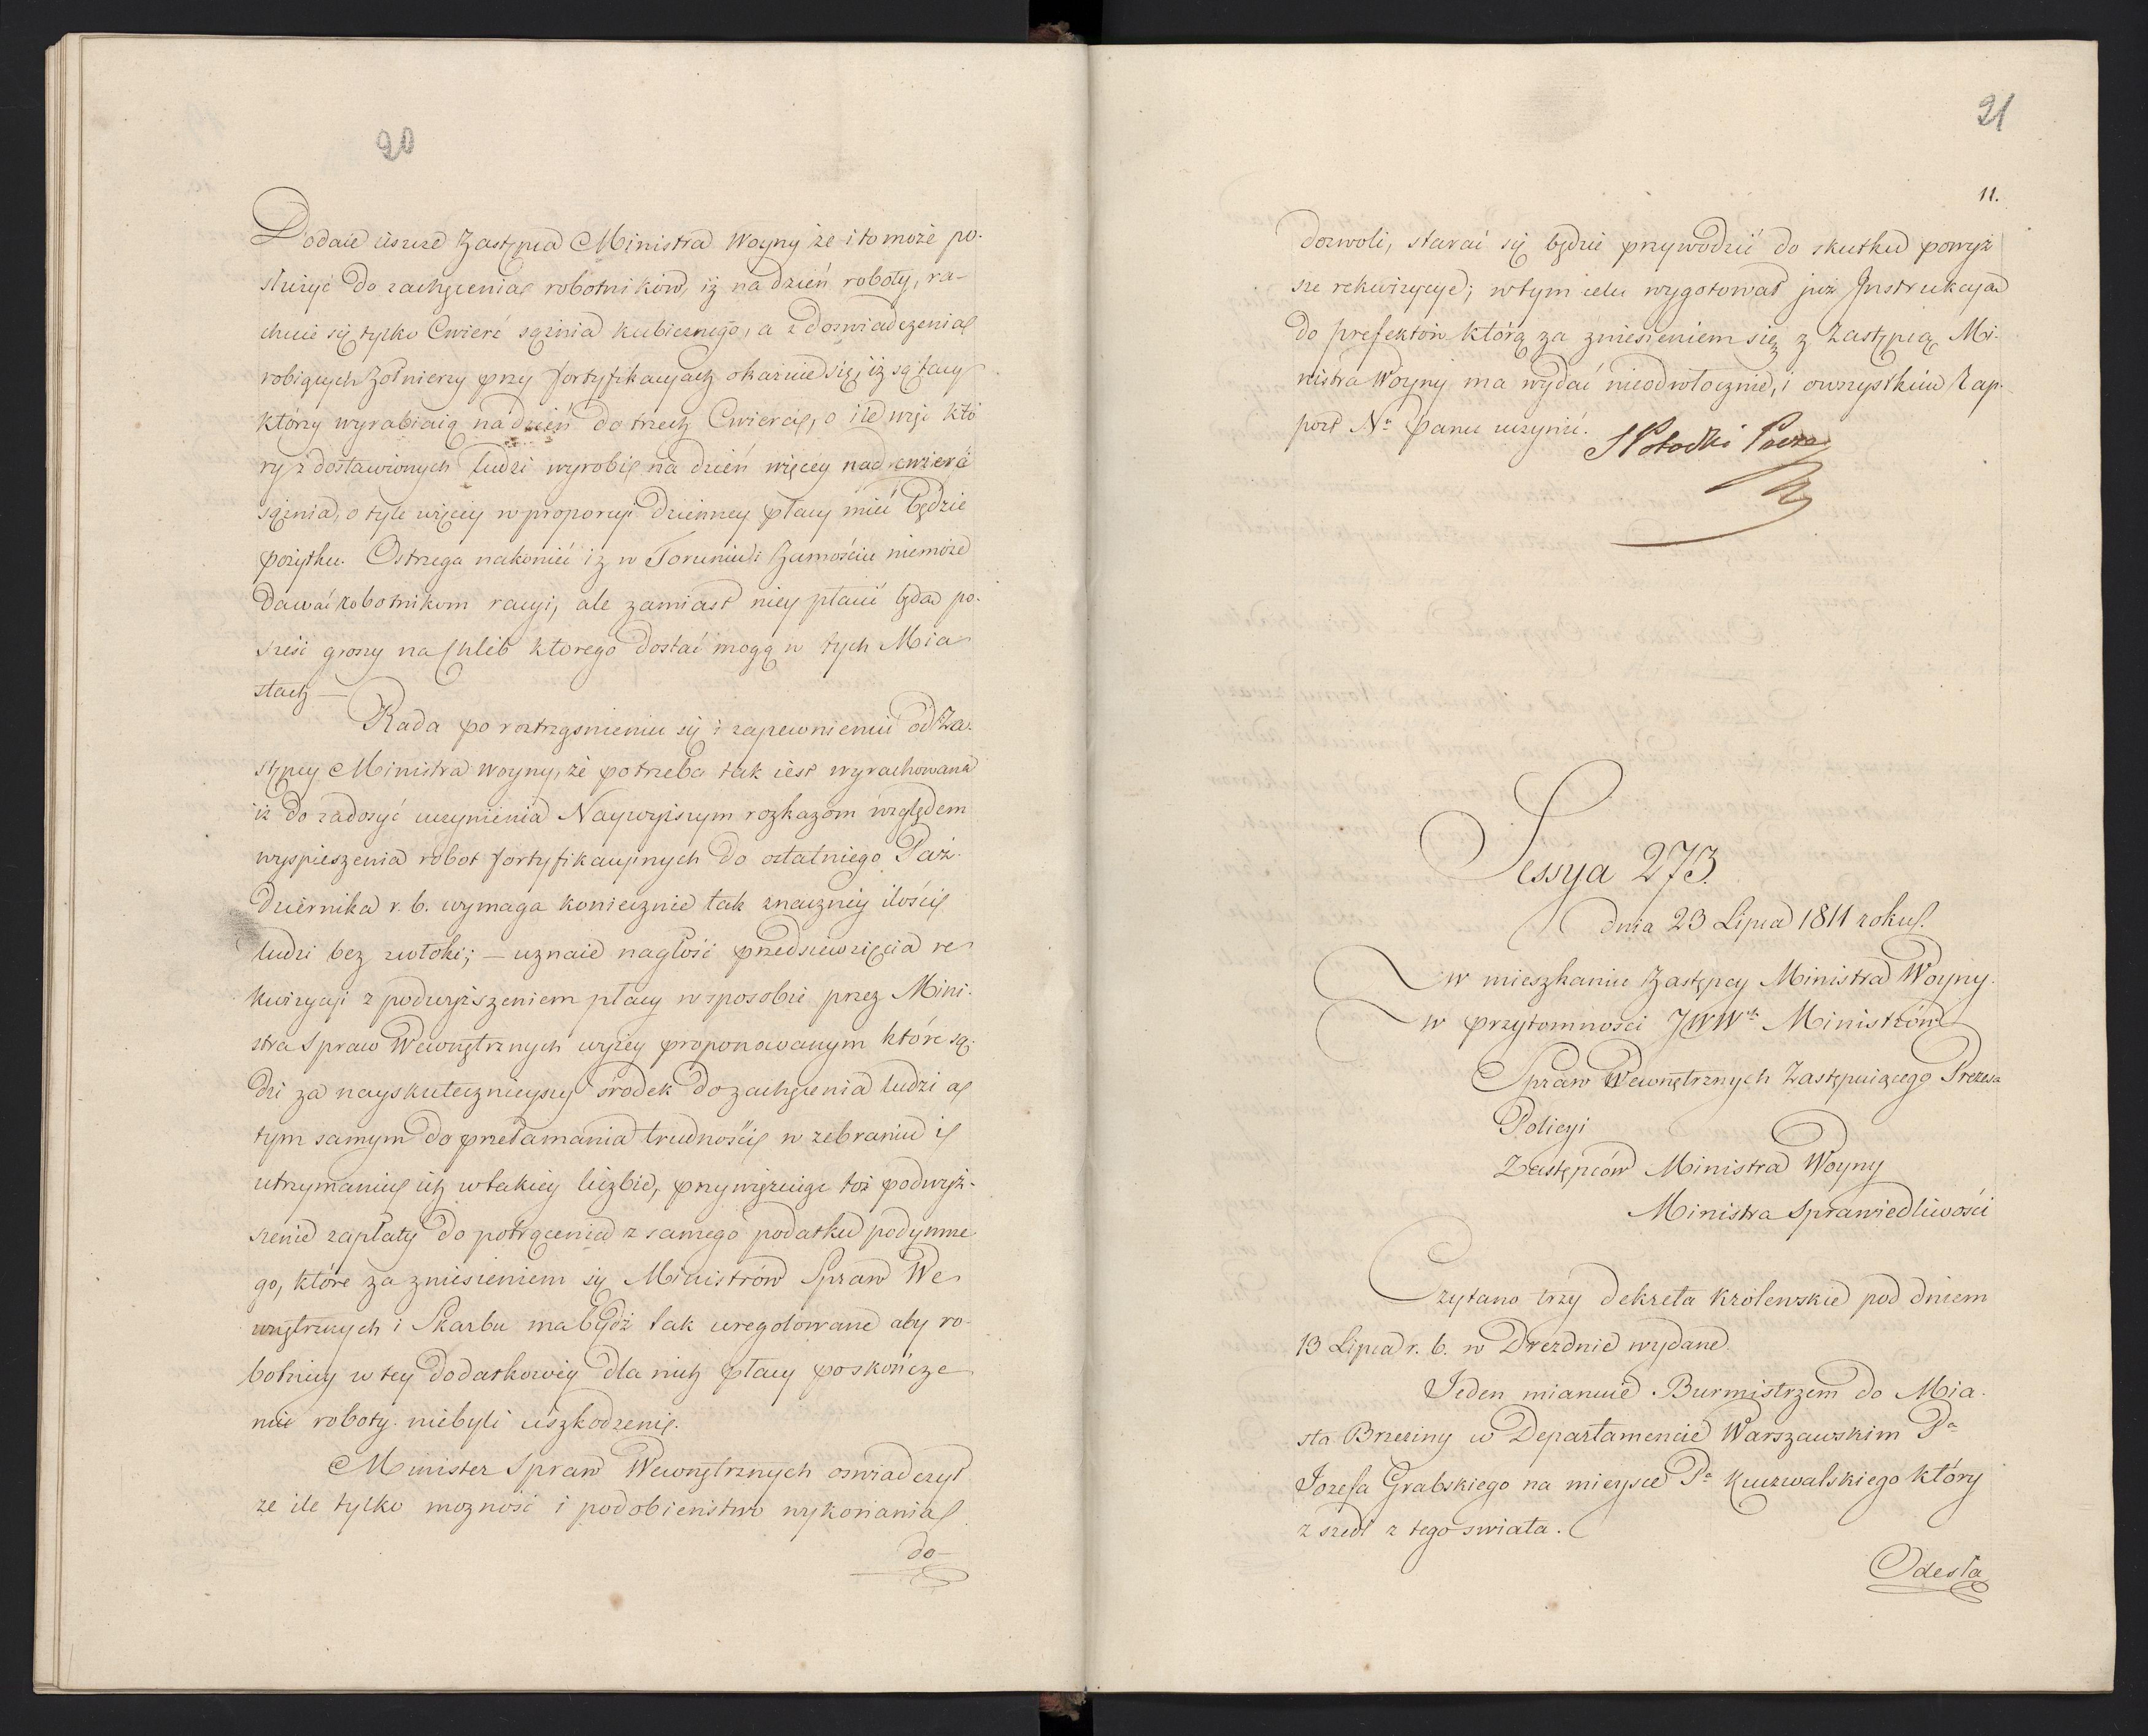 20
Dodaie ieszcze Zastępca Ministra Woyny że i to może po-
służyć do zachęcenia robotników, iż na dzień roboty, ra-
chuie się tylko Cwierć sążnia kubicznego, a z doswiadczenia
robiących żołnierzy przy fortyfikacyach okazuie się, iż są tacy
którzy wyrabiaią na dzień do trzech Cwierci, o ile więc któ
ry z dostawionych ludzi wyrobi na dzień więcey nad cwierć
sążnia, o tyle więcey w proporcyi dzienney płacy mieć będzie
pożytku. Ostrzega nakoniec iż w Toruniu i Zamościu niemoże
dawać robotnikom racyi, ale zamiast niey płacić będa po
sześć groszy na Chleb ktorego dostać mogą w tych Mia
stach —
Rada po roztrząsnieniu się i zapewnieniu od Za-
stępcy Ministra Woyny, że potrzeba tak iest wyrachowana
iż do zadosyć uczynienia Naywyższym rozkazom względem
wyspieszenia robot fortyfikacyinych do ostatniego Paź-
dziernika r. b. wymaga koniecznie tak znaczney ilości
ludzi bez zwłoki; — uznaie nagłość przedsiewzięcia re
kwizycyi z podwyższeniem płacy w sposobie przez Mini-
stra Spraw Wewnętrznych wyżey proponowanym które są-
dzi za nayskutecznieyszy środek do zachęcenia ludzi a
tym samym do przełamania trudności w zebraniu i
utrzymaniu ich w takiey liczbie, przywięzuiąc toż podwyż-
szenie zapłaty do potrącenia z samego podatku podymne-
go, które za zniesieniem się Ministrów Spraw We
wnętrznych i Skarbu ma bydź tak uregulowane aby ro-
botnicy w tey dodatkowey dla nich płacy po skończe
niu roboty niebyli uszkodzeni.
Minister Spraw Wewnętrznych oswiadczył
że ile tylko możność i podobieństwo wykonania
do-
21
11.
dozwoli, starać się będzie przywodzić do skutku powyż
sze rekwizycye; w tym celu wygotował już Instrukcya
do prefektów którą za zniesieniem się z Zastępcą Mi-
nistra Woyny ma wydać nieodwłocznie, i o wszystkim Rap-
port N. Panu uczynić.
S Potocki Prezes
Sessya 273.
dnia 23 Lipca 1811 roku.
w mieszkaniu Zastępcy Ministra Woyny.
w przytomnosci JWW.ch Ministrów
Spraw Wewnętrznych Zastępuiącego Prezesa
Policyi
Zastępców Ministra Woyny
Ministra Sprawiedliwości
Czytano trzy dekreta Królewskie pod dniem
13 Lipca r. b. w Dreznie wydane
Jeden mianuie Burmistrzem do Mia-
sta Brzeziny w Departamencie Warszawskim Pa
Jozefa Grabskiego na mieysce Pa Kuczwalskiego który
zszedł z tego swiata.
Odesła